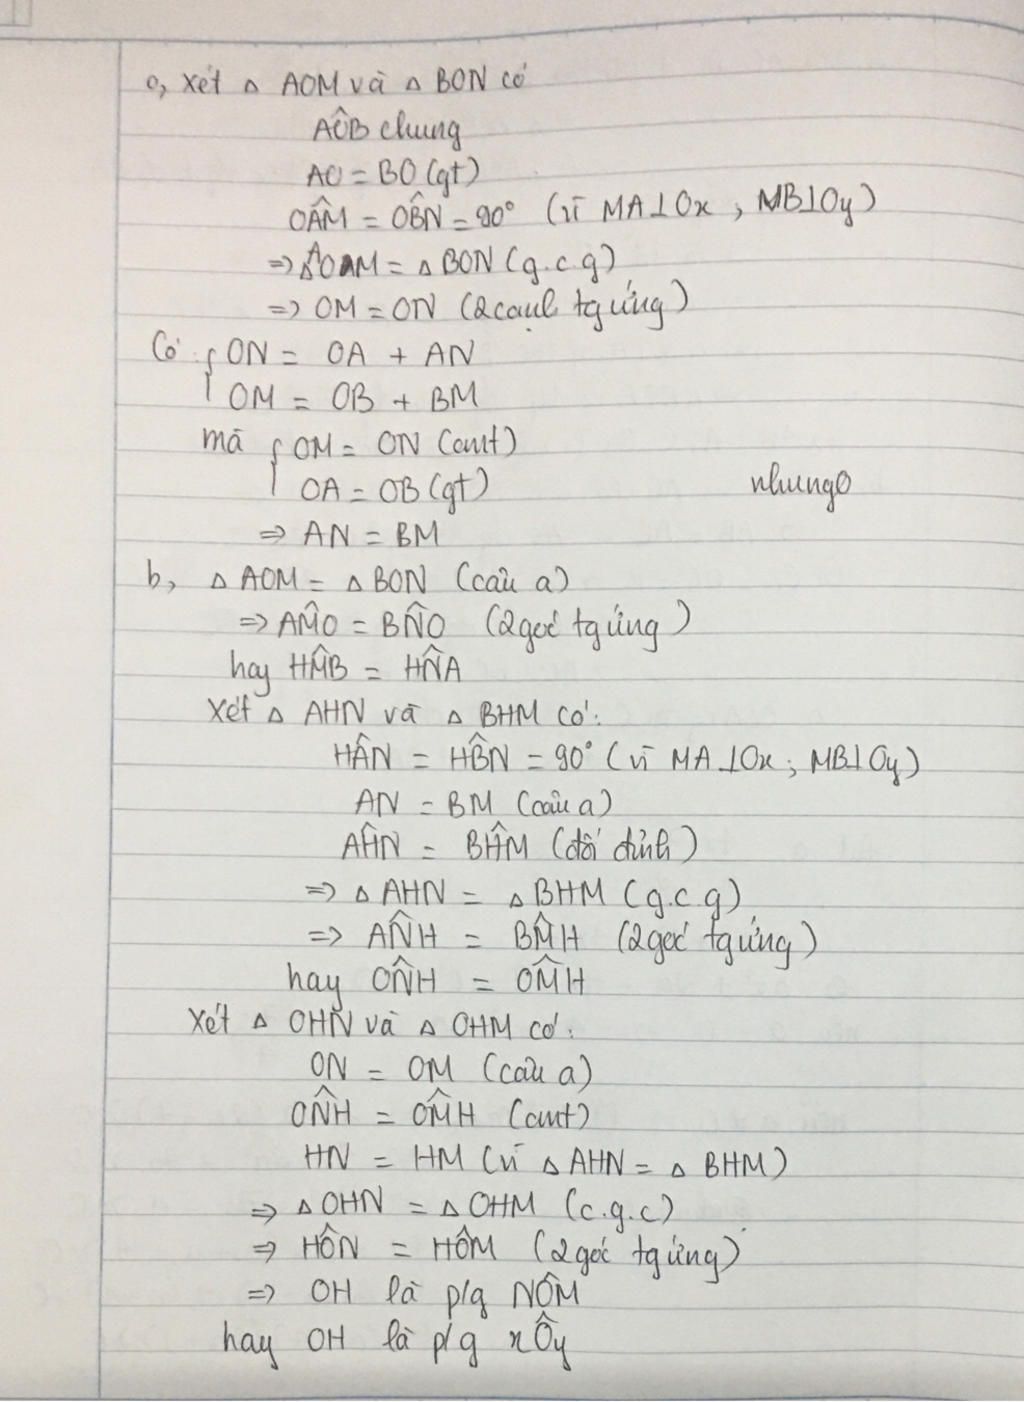 a, Xét △ AOM và △ BON có
AÔB chung
AO = BO (gt)
OÂM = OB̂N = 90° (vì MA⊥Ox , MB⊥Oy)
=> △OAM = △ BON (g.c.g)
=> OM = ON (2 cạnh tg ứng)
Có { ON = OA + AN
OM = OB + BM
mà { OM = ON (cmt)
OA = OB (gt)
nhung0
=> AN = BM
b, △ AOM = △ BON (câu a)
=> AM̂O = BN̂O (2 góc tg ứng)
hay HM̂B = HN̂A
Xét △ AHN và △ BHM có:
HÂN = HB̂N = 90° (vì MA⊥Ox ; MB⊥Oy)
AN = BM (câu a)
AĤN = BĤM (đối đỉnh)
=> △ AHN = △ BHM (g.c.g)
=> AN̂H = BM̂H (2 góc tg ứng)
hay ON̂H = OM̂H
Xét △ OHN và △ OHM có:
ON = OM (câu a)
ON̂H = OM̂H (cmt)
HN = HM (vì △ AHN = △ BHM)
=> △ OHN = △ OHM (c.g.c)
=> HÔN = HÔM (2 góc tg ứng)
=> OH là p/g NÔM
hay OH là p/g xÔy